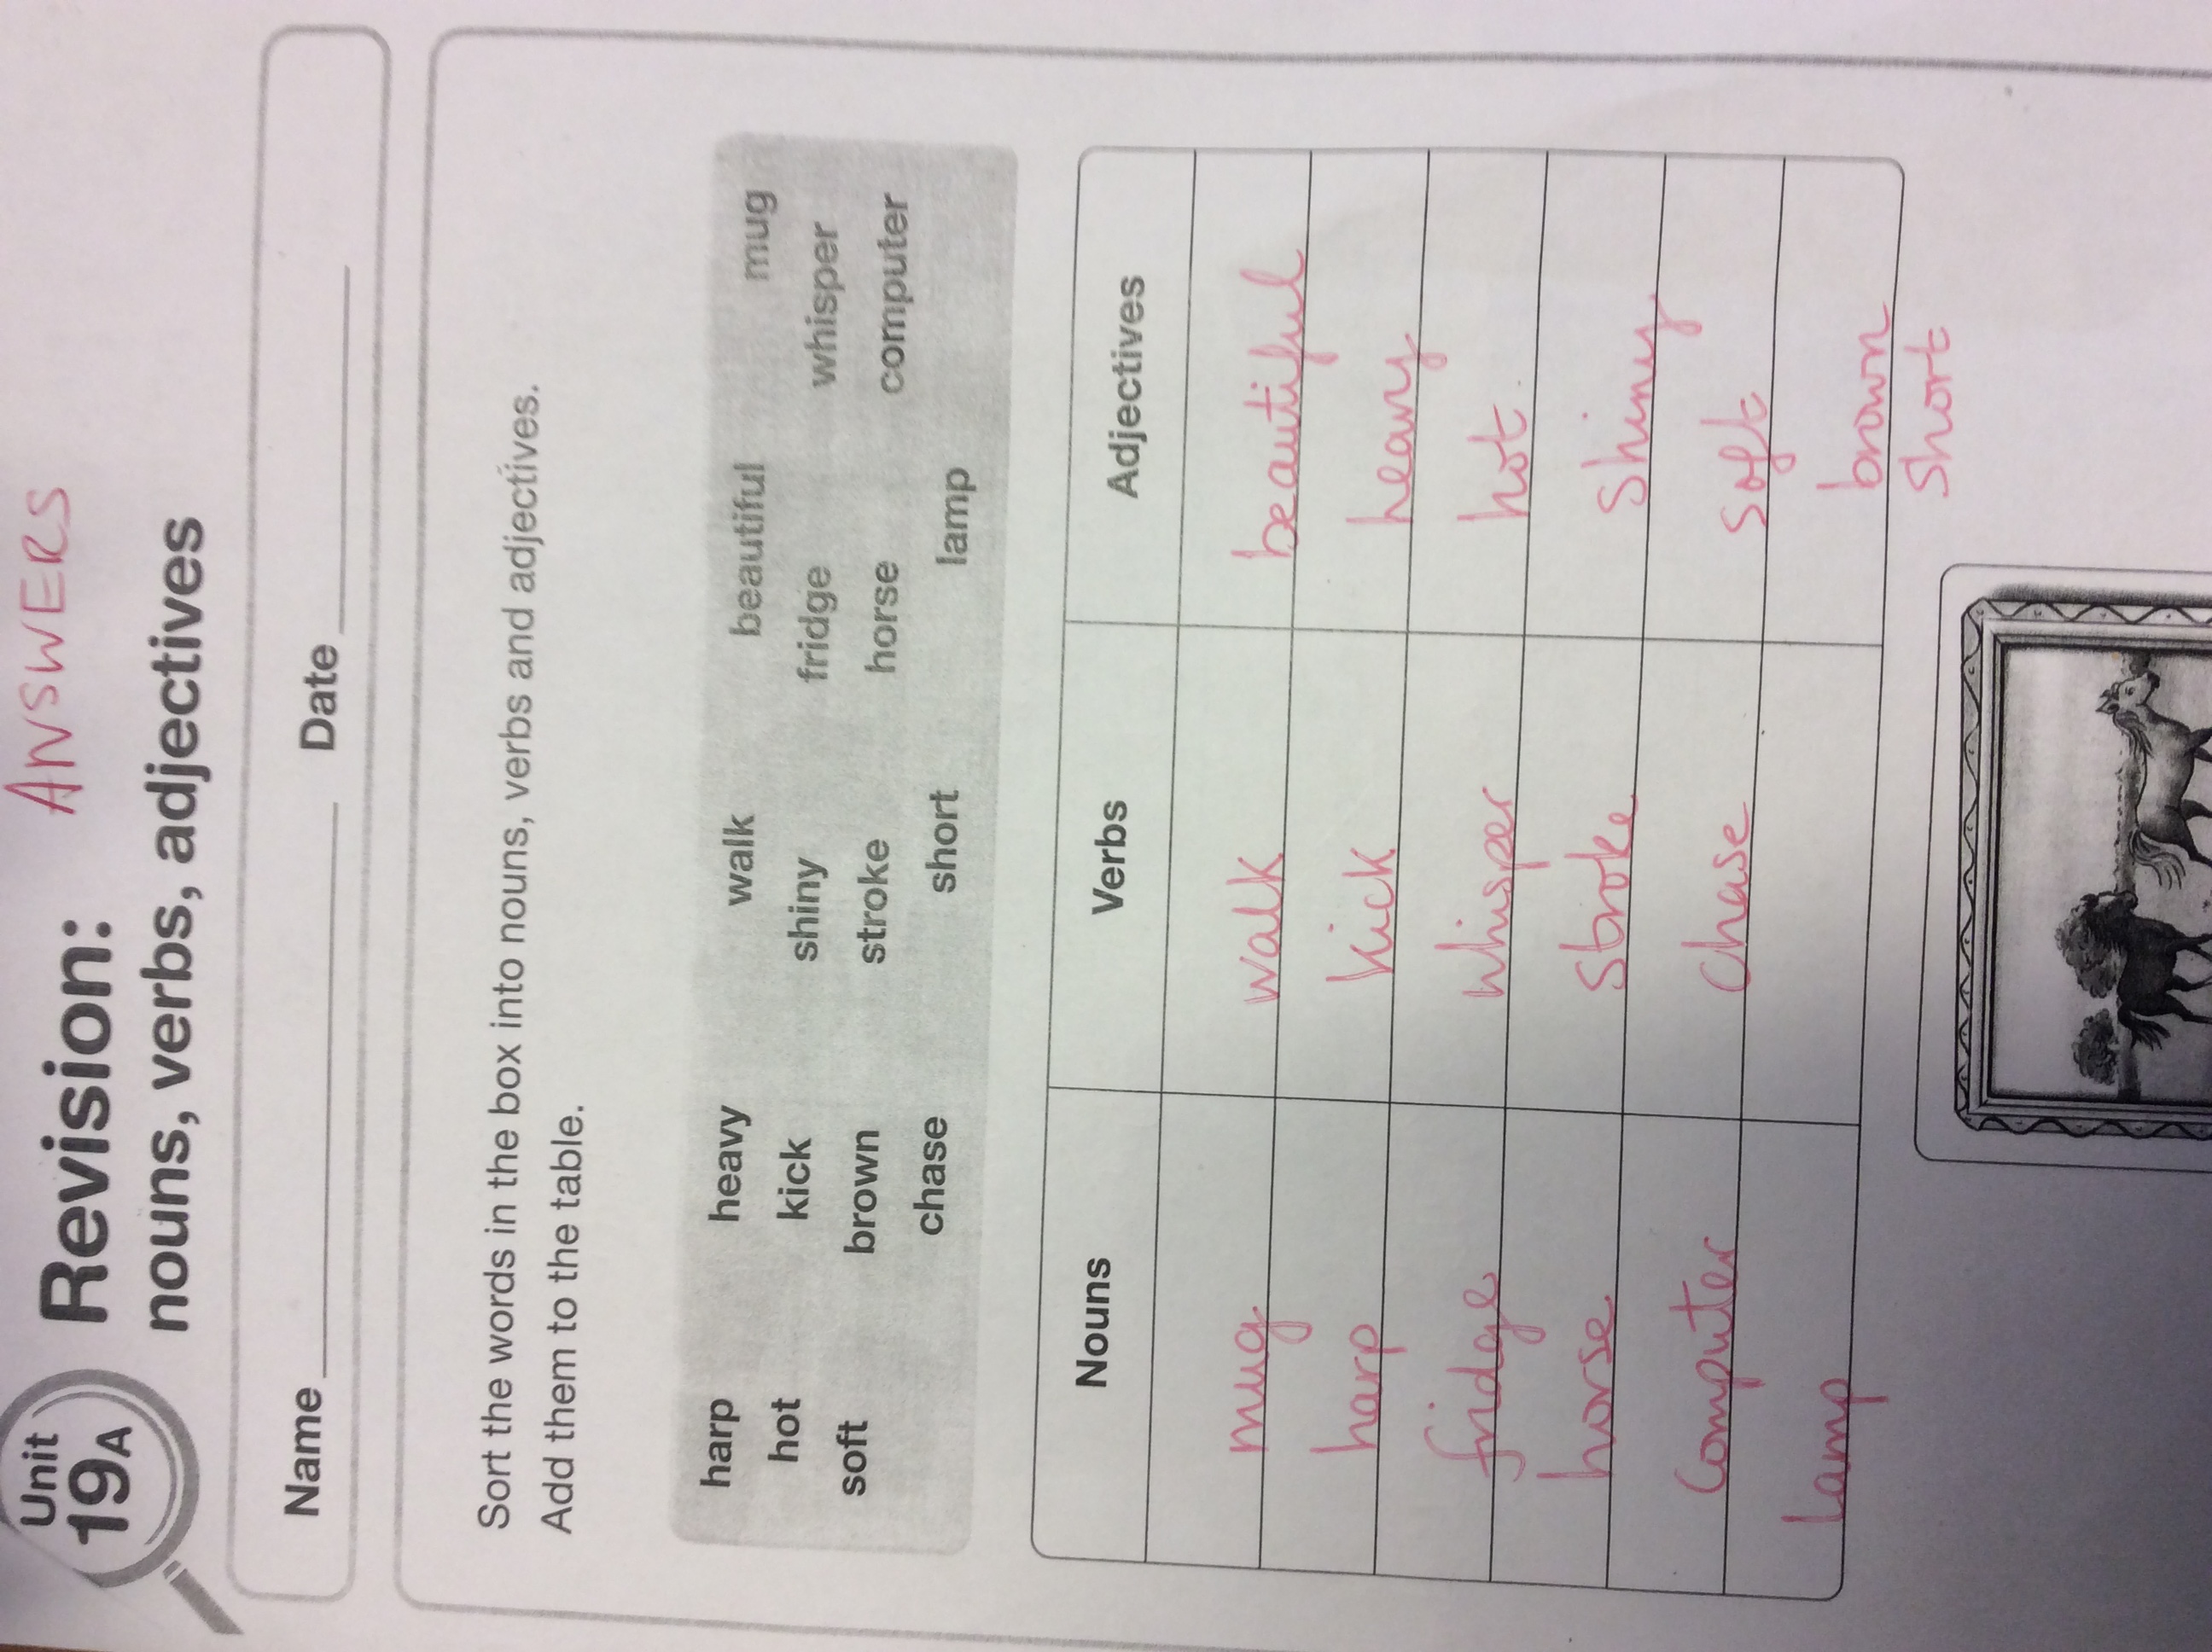 ANSWERS
Unit
19A
Revision:
nouns, verbs, adjectives
Name Date
Sort the words in the box into nouns, verbs and adjectives.
Add them to the table.
harp heavy walk beautiful mug
hot kick shiny fridge whisper
soft brown stroke horse computer
chase short lamp
Nouns Verbs Adjectives
mug walk beautiful
harp kick heavy
fridge whisper hot
horse stroke shiny
computer chase soft
lamp brown
short